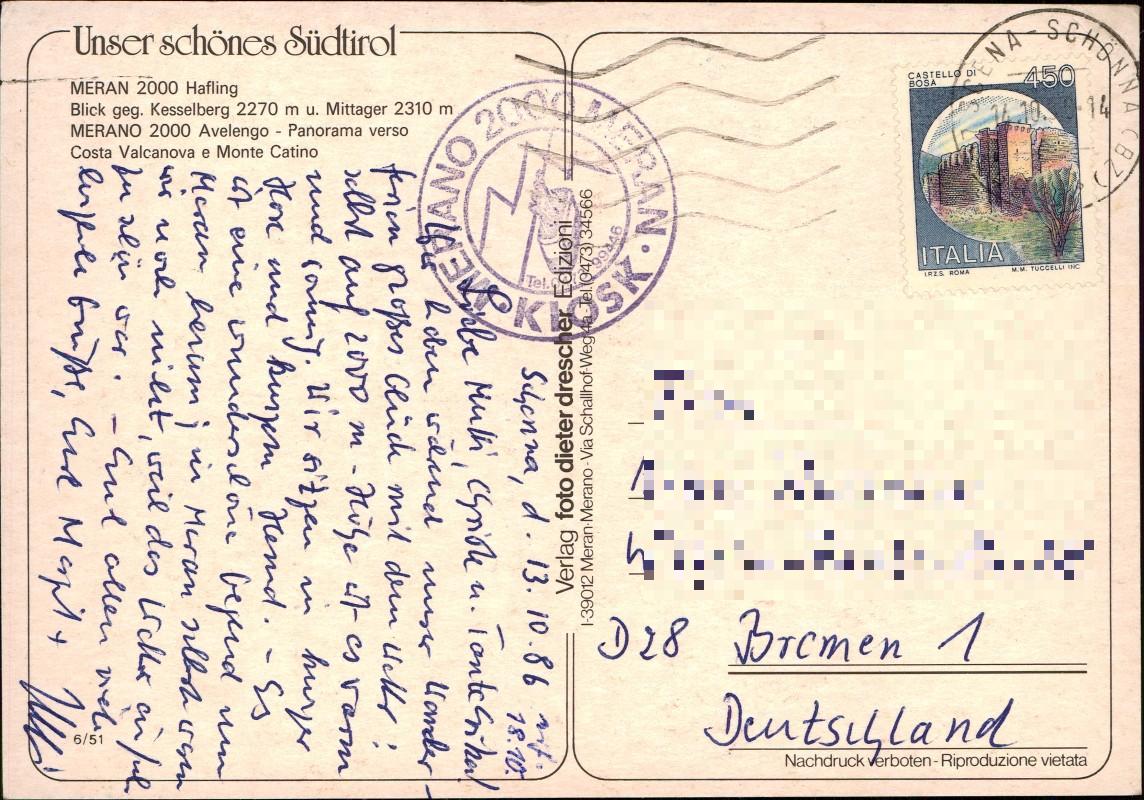 Unser schönes Südtirol
MERAN 2000 Hafling
Blick geg. Kesselberg 2270 m u. Mittager 2310 m
MERANO 2000 Avelengo - Panorama verso
Costa Valcanova e Monte Catino
Schenna, d. 13. 10. 86
18.10.
Liebe Mutti, u. Tante
Wir haben während unser Wander-
ferien großes Glück mit dem Wetter!
selbst auf 2000 m - Höhe ist es warm
und sonnig. Wir sitzen in kurzer
Hose und kurzem Hemd. - Es
ist eine wunderschöne Gegend um
Meran herum; in Meran selbst waren
wir noch nicht, weil das Wetter einfach
zu schön war. - Euch allen viele
Grüße, Eure Margit +
6/51
MERANO 2000 MERAN
KIOSK
Tel.
Verlag foto dieter drescher Edizioni
I-39012 Meran-Merano - Via Schallhof-Weg 4a - Tel. (0473) 34566
SCENA - SCHÖNNA (BZ)
CASTELLO DI
BOSA
450
ITALIA
I.P.Z.S. ROMA
M.M. TUCCELLI INC
D 28 Bremen 1
Deutschland
Nachdruck verboten - Riproduzione vietata